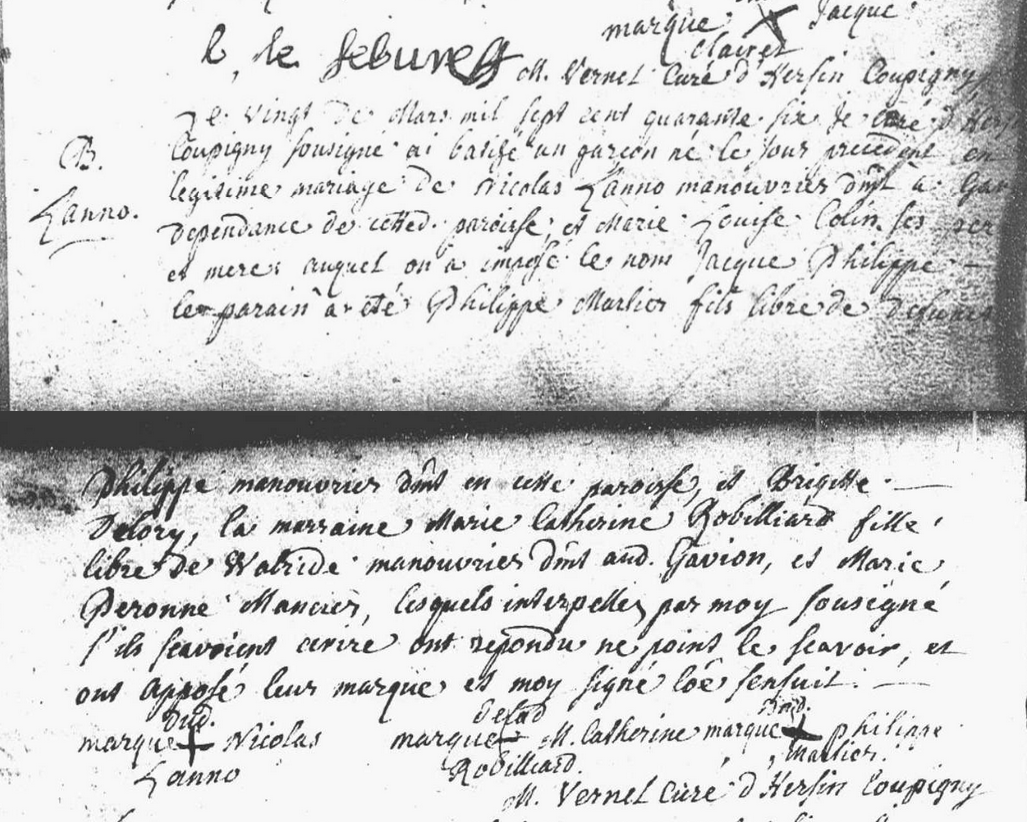 marque Jacque
Clairet
L. le febure
M. Vernet Curé d'Hersin Coupigny
B.
Lanno.
Le vingt de Mars mil sept cent quarante six Je Curé d'Hers
Coupigny sousigné ai batisé un garçon né le Jour précédent en
legitime mariage de Nicolas Lanno manouvrier dmt à Gav
Dependance de cetted. paroisse; et Marie Louise Colin ses per
et mere: auquel on a imposé le nom Jacque Philippe –
le parain a été Philippe Marlier fils libre de
Philippe manouvrier dmt en cette paroisse, et Brigitte –
Delory, la marraine Marie Catherine Robilliard fille
libre de Walride manouvrier dmt aud. Gavion, et Marie
Peronne Mancier, lesquels interpellez par moy sousigné
s'ils scavoient ecrire ont repondu ne point le scavoir, et
ont apposé leur marque et moy signé côe sensuit. –
dud. delad dud.
marque Nicolas marque M. Catherine marque Philippe
Lanno Robilliard. Marlier.
M. Vernet Curé d'Hersin Coupigny